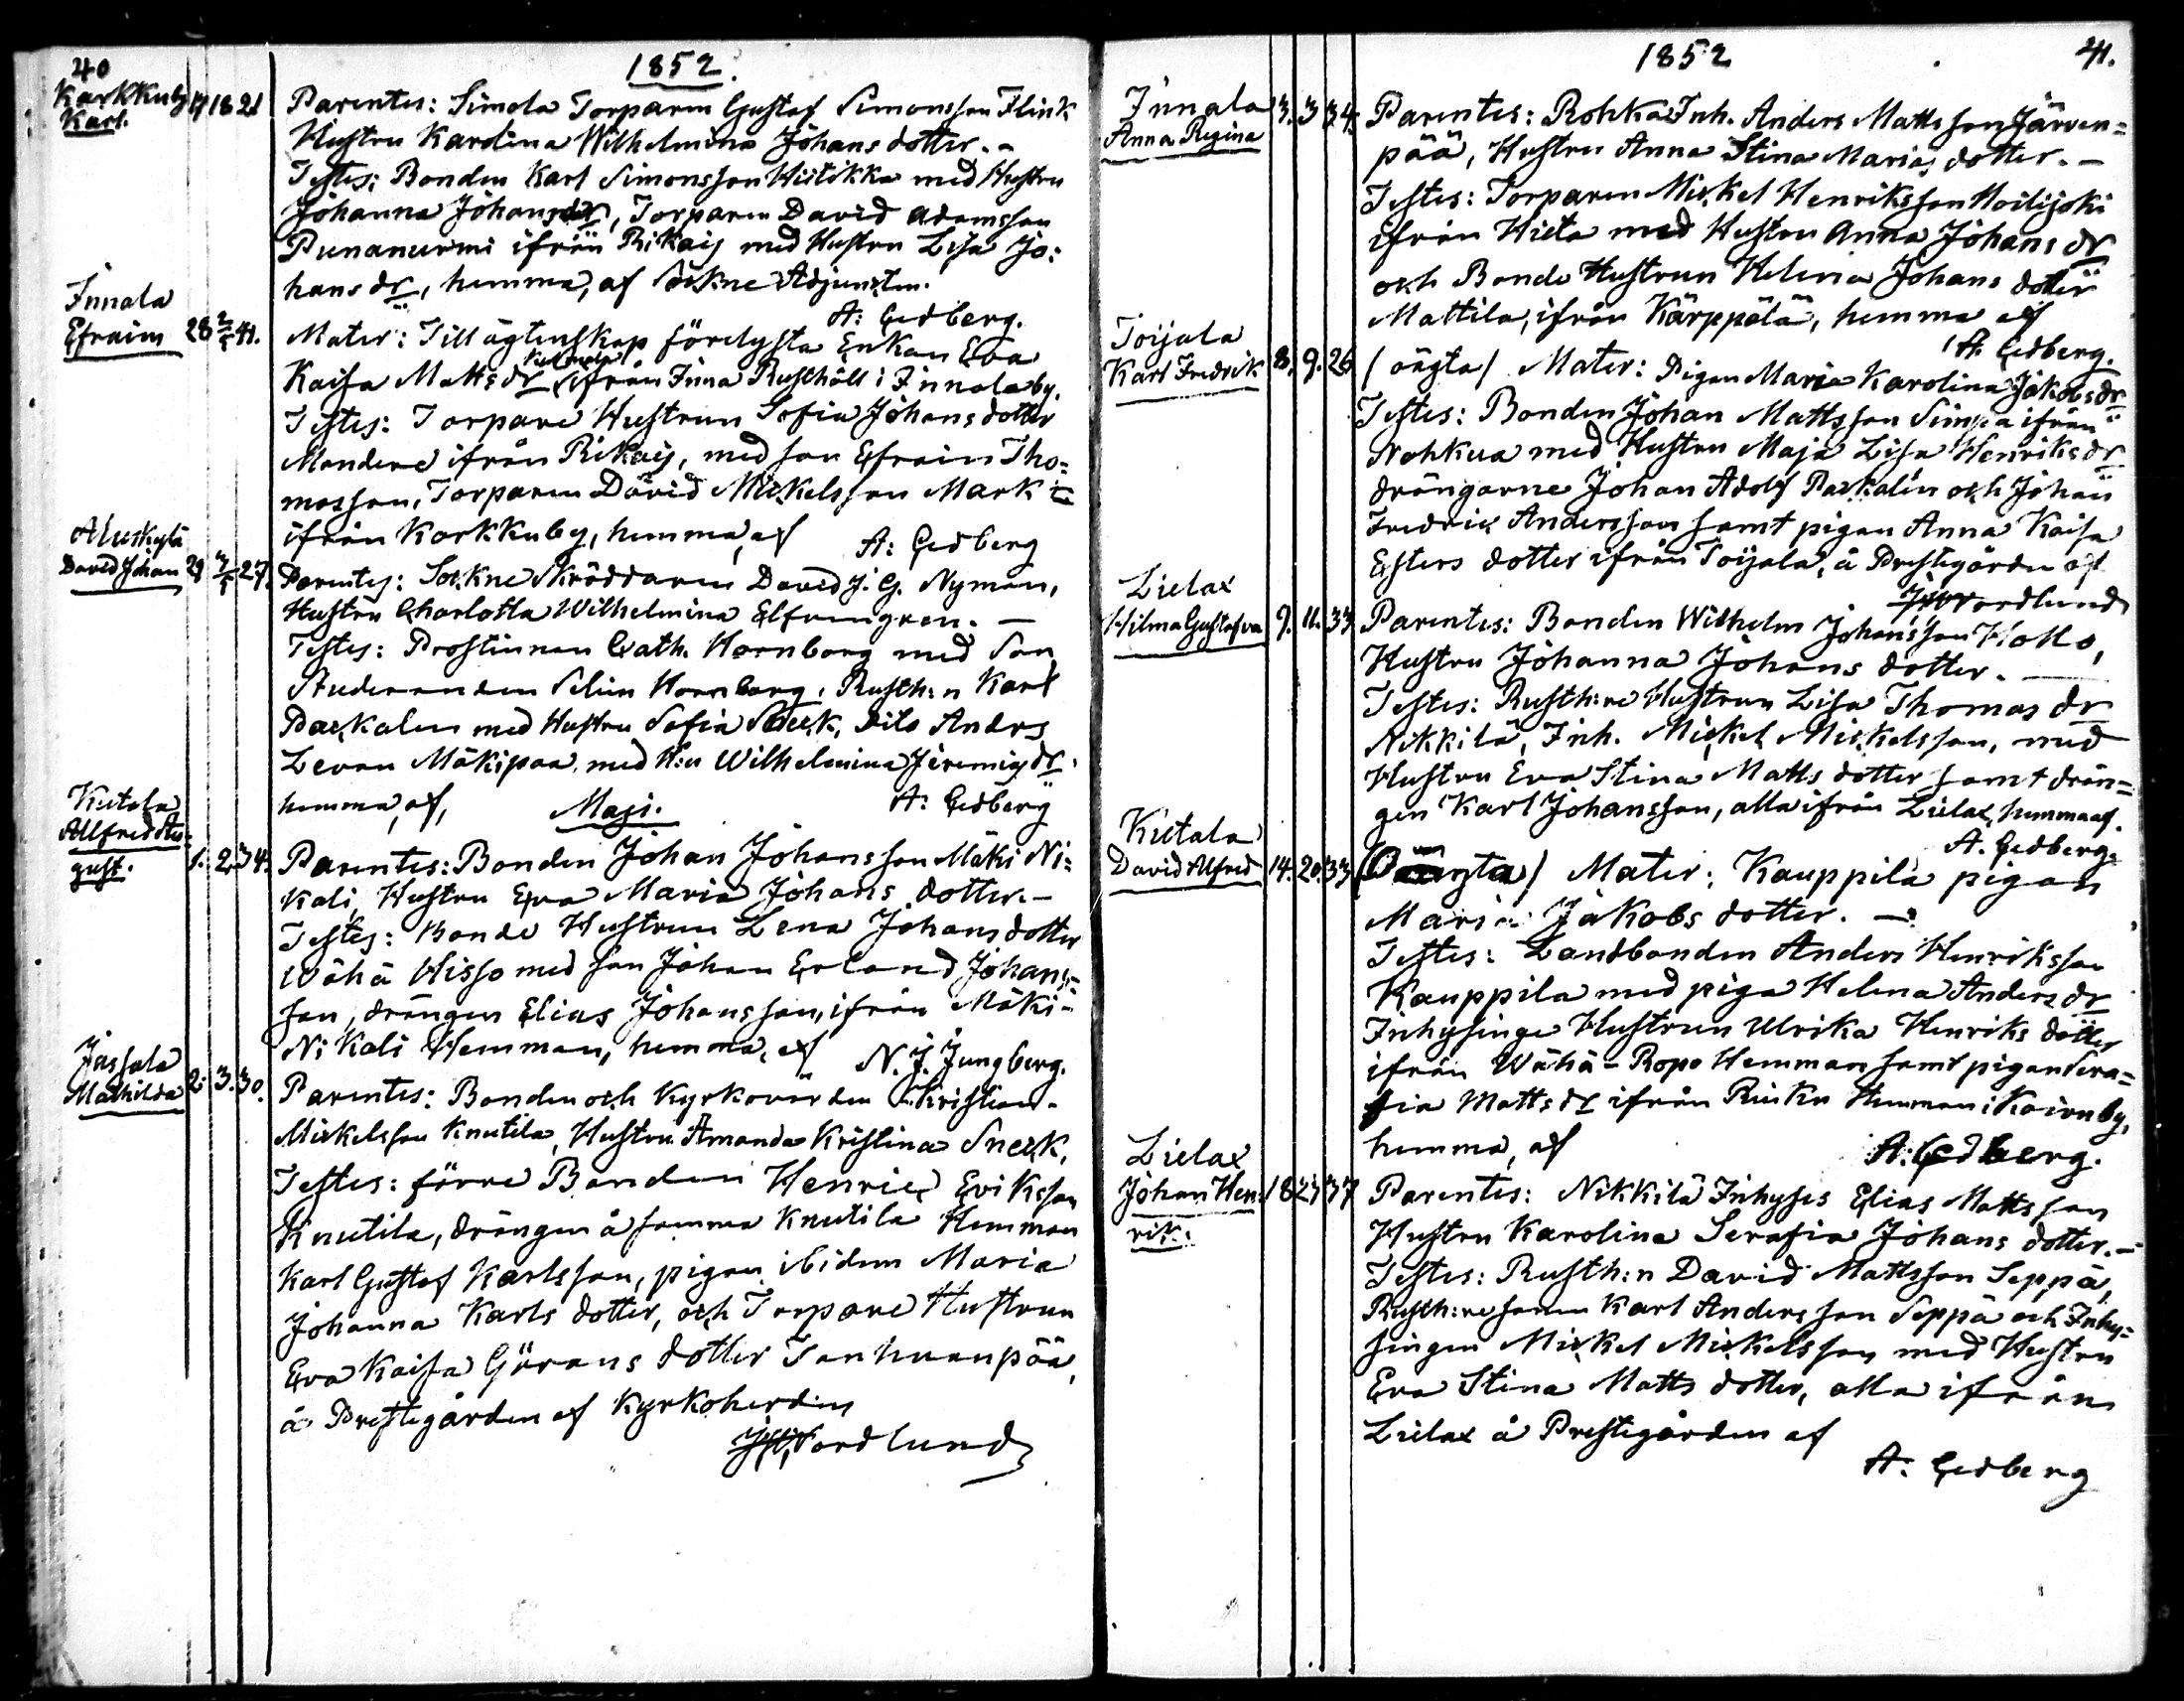 40
1852.
Karkkuby 17 18 21
Karl.
Parentes: Simola Torparen Gustaf Simonsson Flink
Hustru Karolina Wilhelmina Johans dotter.-
Testes: Bonden Karl Simonsson Hiitikka med Hustru
Johanna Johans dr, Torparen David Adamsson
Punanurmi ifrån Rikais med Hustru Lisa Jo:
hans dr, hemma, af Sockne Adjunkten.
A: Cedberg.
Innala
Efraim 28 2/5 41.
Mater: Till ägtenskap förelysta Enkan Eva
Kaisa Matts dr ifrån Inna Rusthåll i Innala by.
Testes: Torpare Hustrun Sofia Johans dotter
Mandere ifrån Rikais, med son Efraim Tho=
masson, Torparen David Mickelsson Mark
ifrån Karkkuby, hemma, af
A: Cedberg
Aluskylä
David Johan 29 3/5 27.
Parentes: Sockne Skräddaren David J. G. Nyman,
Hustru Charlotta Wilhelmina Elfvengren. -
Testes: Prostinnan Cath. Hornborg med Son
Studeranden Selim Hornborg, Rusth:n Karl
Packalen med Hustru Sofia Sneck, Dito Anders
Levan Mäkipaa, med H:u Wilhelmina Jeremias dr.
hemma, af,
A: Cedberg
Maji.
Kutala
Allfred Au=
gust. 1. 2. 34.
Parentes: Bonden Johan Johansson Mäki Ni=
kali, Hustru Eva Maria Johans dotter.-
Testes: Bonde Hustrun Lena Johans dotter
Wähä Hisso med son Johan Erland Johans=
son, drängen Elias Johansson, ifrån Mäki-
Nikali Hemman, hemma, af
N. J. Jungberg.
Jussala
Mathilda 2. 3. 30.
Parentes: Bonden och Kyrkovärden Kristian
Mickelsson Knutila, Hustru Amanda Kristina Sneck.
Testes: förre Bonden Henric Eriksson
Knutila, drängen å samma Knutila Hemman
Karl Gustaf Karlsson, pigan ibidem Maria
Johanna Karls dotter, och Torpare Hustrun
Eva Kaisa Görans dotter Tanhuanpää,
å Prestegården af Kyrkoherden
Nordlund
1852
41.
Innala 3. 3 34.
Anna Regina
Parentes: Rohka Inh. Anders Mattsson Järven=
pää, Hustru Anna Stina Marias dotter. -
Testes: Torparen Mickel Henriksson Moilijoki
ifrån Hieta med Hustru Anna Johans dr
och Bonde Hustrun Helena Johans dotter
Mattila, ifrån Kärppälä, hemma af
A. Cedberg.
Toijala
Karl Fredrik 8. 9. 26
/oägta/ Mater: Pigan Maria Karolina Jakobs dr
Testes: Bonden Johan Mattsson Simpa ifrån
Nohkua med Hustru Maja Lisa Henriks dr
drängarne Johan Adolf Packalén och Johan
Fredric Andersson samt pigan Anna Kaisa
Esters dotter ifrån Toijala, å Prestegården af
Nordlund
Lielax
Hilma Gustafva 9. 11. 33
Parentes: Bonden Wilhelm Johansson Hollo,
Hustru Johanna Johans dotter. -
Testes: Rusth:re Hustrun Lisa Thomas dr
Nikkilä, Inh. Mickel Mickelsson, med
Hustru Eva Stina Matts dotter samt drän=
gen Karl Johansson, alla ifrån Lielax, hemma af.
A. Cedberg.
Kutala
David Alfred 14. 20. 33
Mater: Kauppila pigan
Maria Jakobs dotter. -
Testes: Landbonden Anders Henriksson
Kauppila med piga Helena Anders dr
Inhysinge Hustrun Ulrika Henriks dotter
ifrån Wähä-Ropo Hemman samt pigan Sera=
fia Matts dr ifrån Hemman i Kairu by,
hemma, af
A: Cedberg.
Lielax
Johan Hen= 18 23 37
rik.
Parentes: Nikkilä Inhyses Elias Mattsson
Hustru Karolina Serafia Johans dotter.-
Testes: Rusth:n David Mattsson Seppä,
Rusth:re sonen Karl Andersson Seppä och Inhy=
singen Mickel Mickelsson med Hustru
Eva Stina Matts dotter, alla ifrån
Lielax å Prestegården af
A: Cedberg